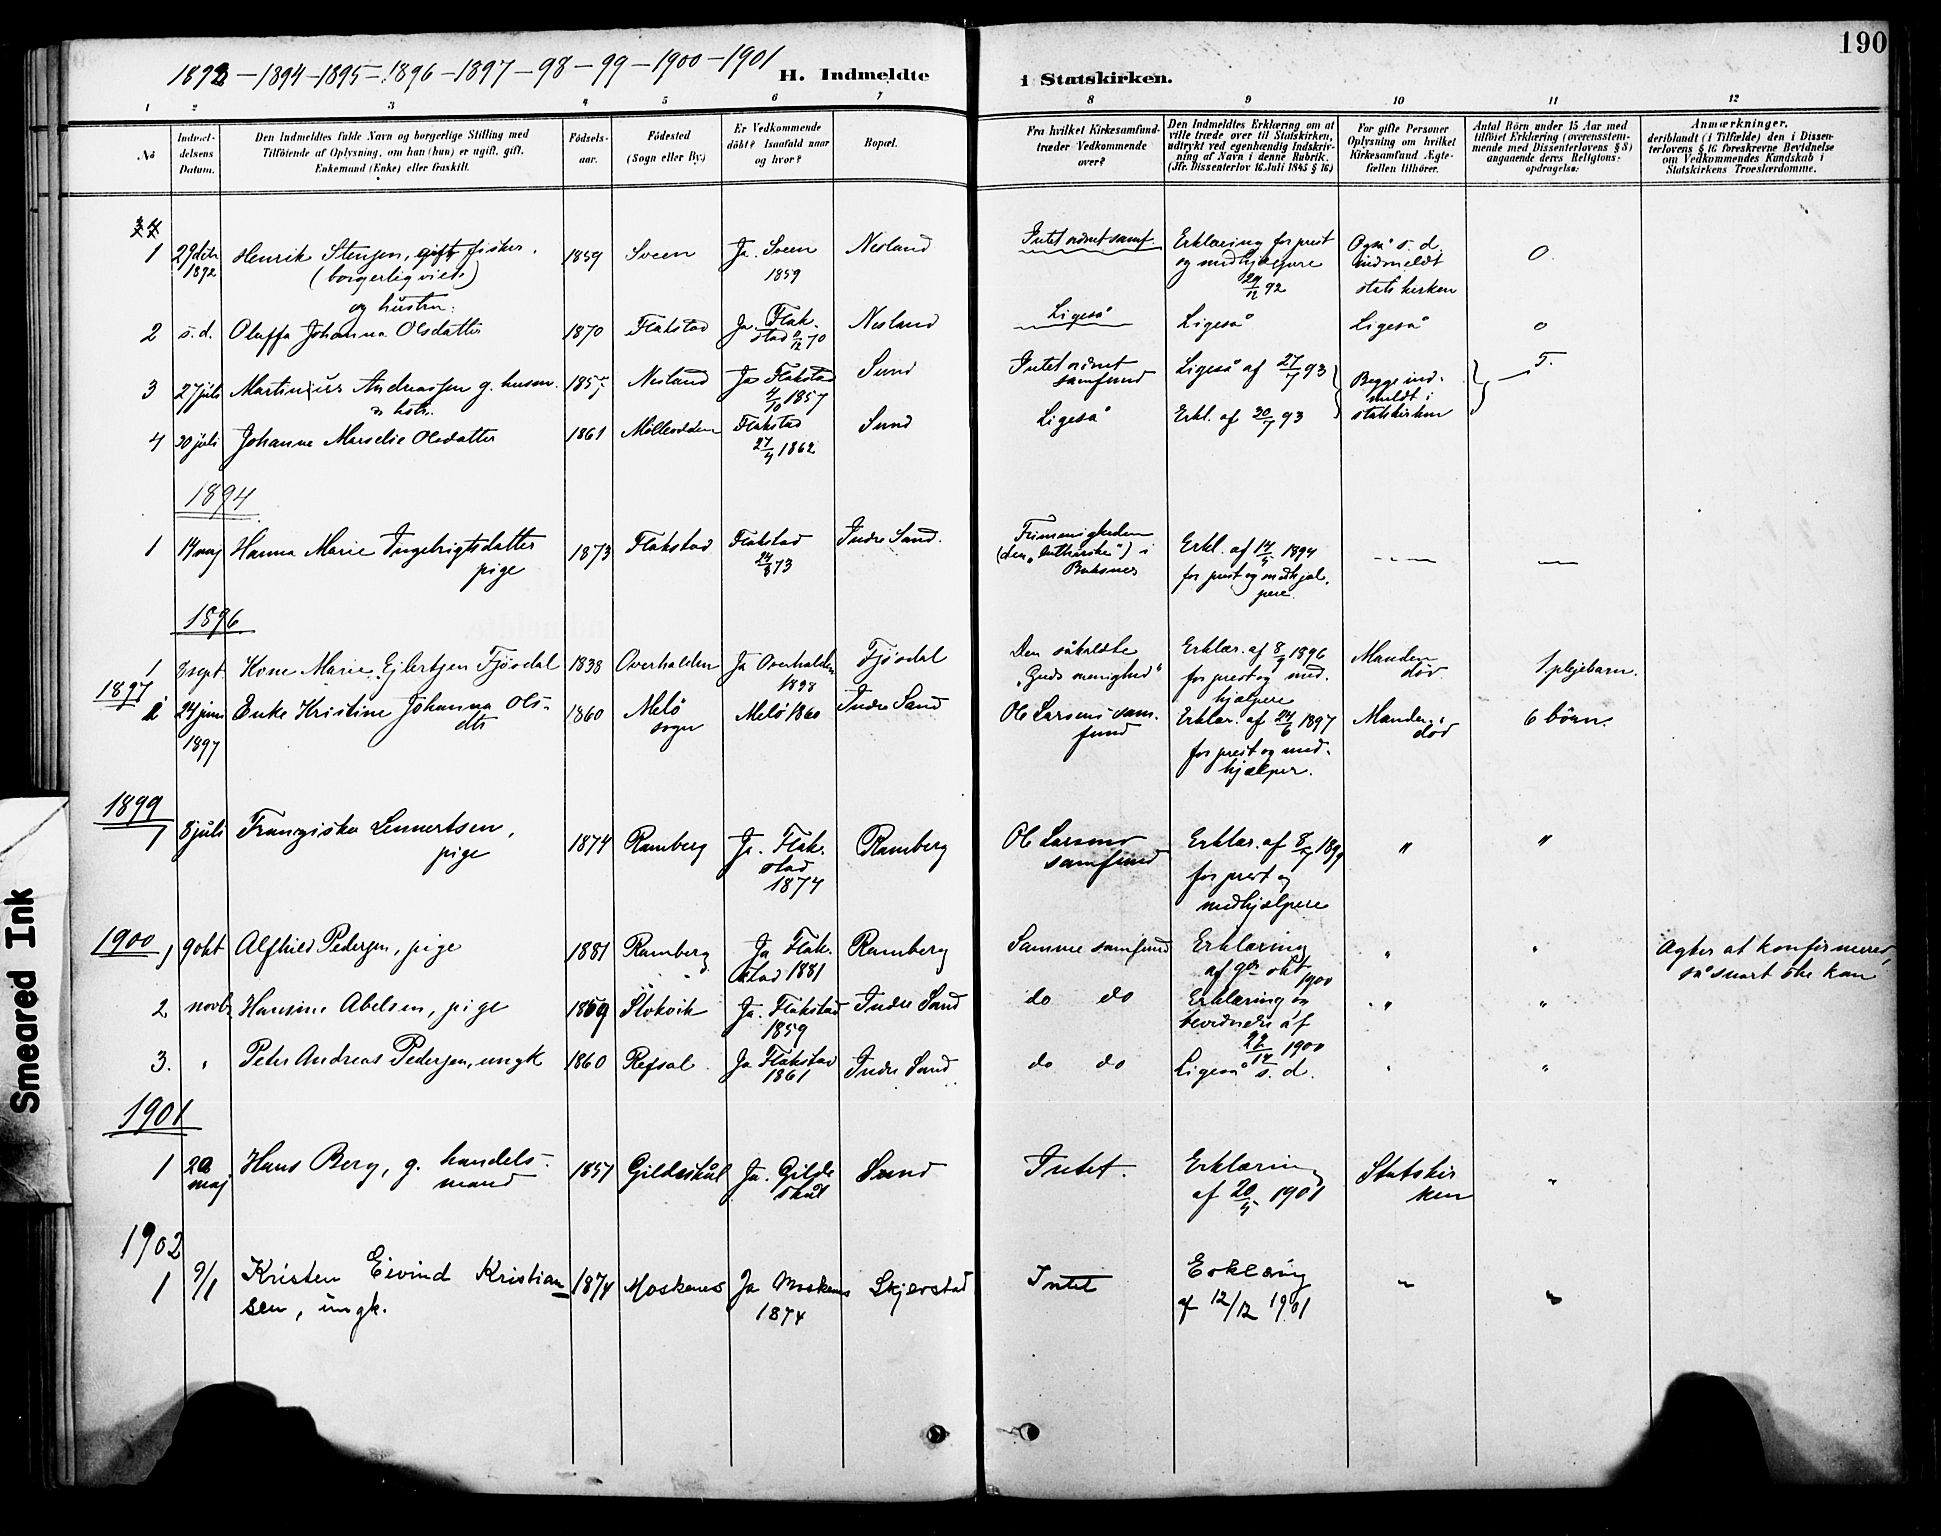 190
1892 - 1894 - 1895 - 1896 - 1897 - 98 - 99 - 1900 - 1901
H. Indmeldte i Statskirken.
1 2 3 4 5 6 7 8 9 10 11 12
No
Indmel-
delsens
Datum.
Den Indmeldtes fulde Navn og borgerlige Stilling med
Tilföiende af Oplysning, om han (hun) er ugift, gift,
Enkemand (Enke) eller fraskilt.
Födsels-
aar.
Födested
(Sogn eller By.)
Er Vedkommende
döbt? Isaafald naar
og hvor?
Bopæl.
Fra hvilket Kirkesamfund
træder Vedkommende
over?
Den Indmeldtes Erklæring om at
ville træde over til Statskirken,
udtrykt ved egenhændig Indskriv-
ning af Navn i denne Rubrik.
(Jfr. Dissenterlov 16 Juli 1845 § 16)
For gifte Personer
Oplysning om hvilket
Kirkesamfund Ægte-
fællen tilhörer.
Antal Börn under 15 Aar med
tilföiet Erklæring (overensstem-
mende med Dissenterlovens § 8)
angaaende deres Religions-
opdragelse:
Anmærkninger,
deriblandt (i Tilfælde) den i Dissen-
terlovens § 16 foreskrevne Bevidnelse
om Vedkommendes Kundskab i
Statskirkens Troeslærdomme.
1 29 dcbr 1892 Henrik Stensen, gift fisker. 1859 Sveen Ja. Sveen 1859 Nesland Intet ordnet samf. Erklæring for prest Også s. d. 0
(borgerlig viet) og medhjælpere indmeldt
og hustru: 29/12 92 statskirken
2 s.d. Oluffa Johanna Olsdatter 1870 Flakstad Ja. Flak-
stad /12 70 Nesland Ligeså Ligeså Ligeså 0
3 27 juli Martinius Andreassen g. husm. 1857 Nesland Ja Flakstad
4/10 1857 Sund Intet ordnet
samfund Ligeså af 27/7 93 Begge ind-
meldt i
statskirken 5.
& hstr.
4 30 juli Johanna Marselie Olsdatter 1861 Mölleodden Flakstad
27/4 1862 Sund Ligeså Erkl. af 30/7 93
1894
1 14 maj Hanna Marie Ingebrigtsdatter
pige 1873 Flakstad Flakstad
24/3 73 Indre Sand. Frimenigheden
(den "lutherske") i
Buksnes Erkl. af 14/5 1894
for prest og medhjæl-
pere.
1896
1 8 sept. Kone Marie Ejlertsen Fjösdal 1838 Overhalden Ja Overhalden
1838 Fjösdal Den såkaldte
"Guds menighed" Erklær. af 8/9 1896
for prest og med-
hjælpere Manden
död 1 plejebarn.
1897
1 24 juni
1897 Enke Kristine Johanna Ols-
dtr 1860 Melö
sogn Melö 1860 Indre Sand Ol. Larsens sam-
fund Erklær. af 24/6 1897
for prest og med-
hjælper. Manden
död 6 börn.
1899
1 8 juli Franziska Lennertsen,
pige 1874 Ramberg Ja. Flak-
stad
1874 Ramberg Ol Larsens
samfund Erklær. af 8/7 1899
for prest og
medhjælpere " "
1900
1 9 okt Alfhild Pedersen, pige 1881 Ramberg Ja Flak-
stad 1881 Ramberg Samme samfund Erklæring
af 9de okt
1900 " " Agter at konfirmeres,
så snart ske kan
2 novbr Hansine Abelsen, pige 1859 Stokvik Ja. Flakstad
1859 Indre Sand do do Erklæring og
bevidnelse af
22/1900 " "
3. " Peter Andreas Pedersen, ungk 1860 Refsal Ja Flakstad
1861 Indre Sand do do Ligeså s. d. " "
1901
1 20
maj Hans Berg, g. handels-
mand 1857 Gildeskål Ja. Gilde
skål Sund Intet. Erklæring
af 20/5 1901 Statskir
ken "
1902
1 9/1 Kristen Eivind Kristian
sen, ungk. 1874 Moskenes Ja Moskenes
1874 Skjerstad Intet Erklæring
af 12/12 1901 " "
Smeared Ink